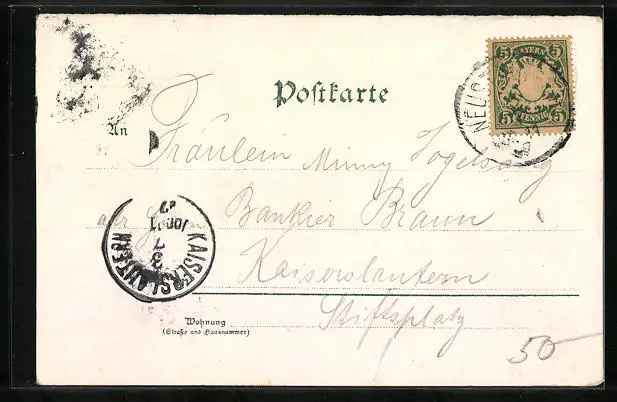 Postkarte
5 BAYERN 5
5 PFENNIG 5
NEUS
An
Fräulein Minny Vogelsang
adr. Bankier Braun
KAISERSLAUTERN
Kaiserslautern
Wohnung
(Straße und Hausnummer)
Stiftsplatz
50